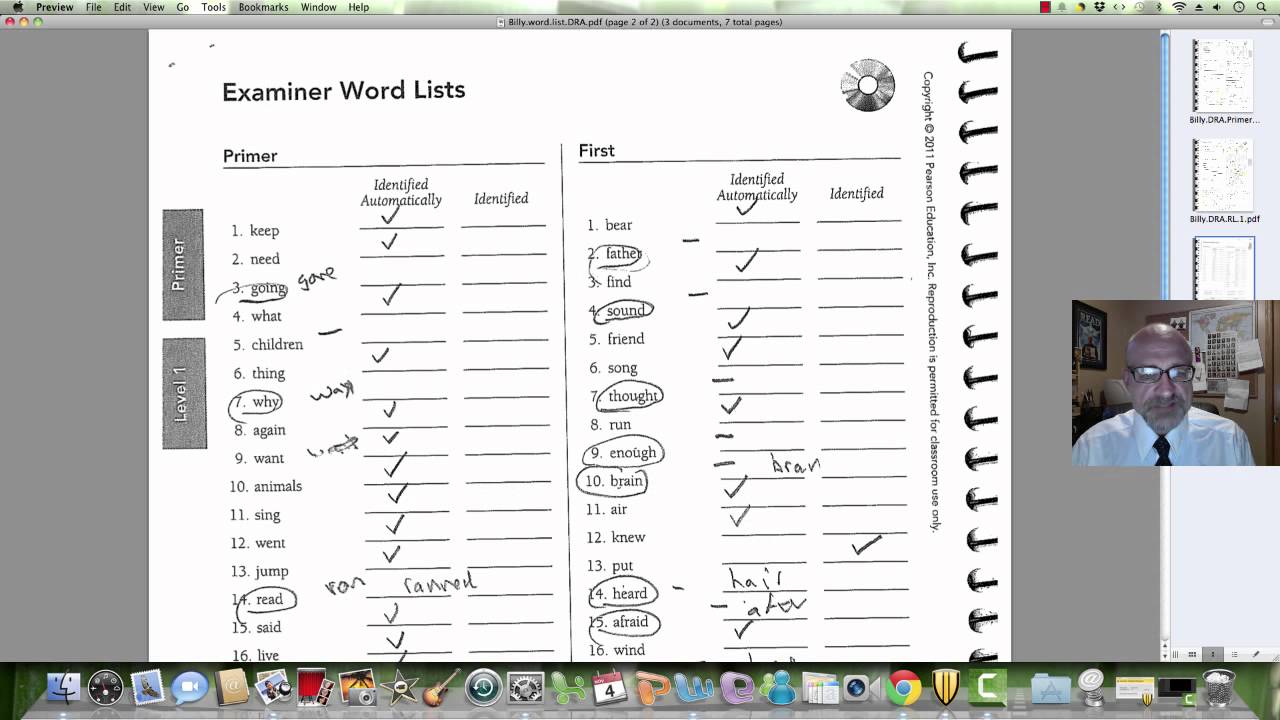 Preview File Edit View Go Tools Bookmarks Window Help
Billy.word.list.DRA.pdf (page 2 of 2) (3 documents, 7 total pages)
Examiner Word Lists
Primer
Identified Automatically Identified
Primer
Level 1
1. keep
2. need
3. going gave
4. what
5. children
6. thing
7. why
8. again
9. want
10. animals
11. sing
12. went
13. jump
14. read ran ranned
15. said
16. live
First
Identified Automatically Identified
1. bear
2. father
3. find
4. sound
5. friend
6. song
7. thought
8. run
9. enough
10. brain bran
11. air
12. knew
13. put
14. heard hair
15. afraid
16. wind
Copyright © 2011 Pearson Education, Inc. Reproduction is permitted for classroom use only.
Billy.DRA.Primer...
Billy.DRA.RL.1.pdf
READ
NOV
4